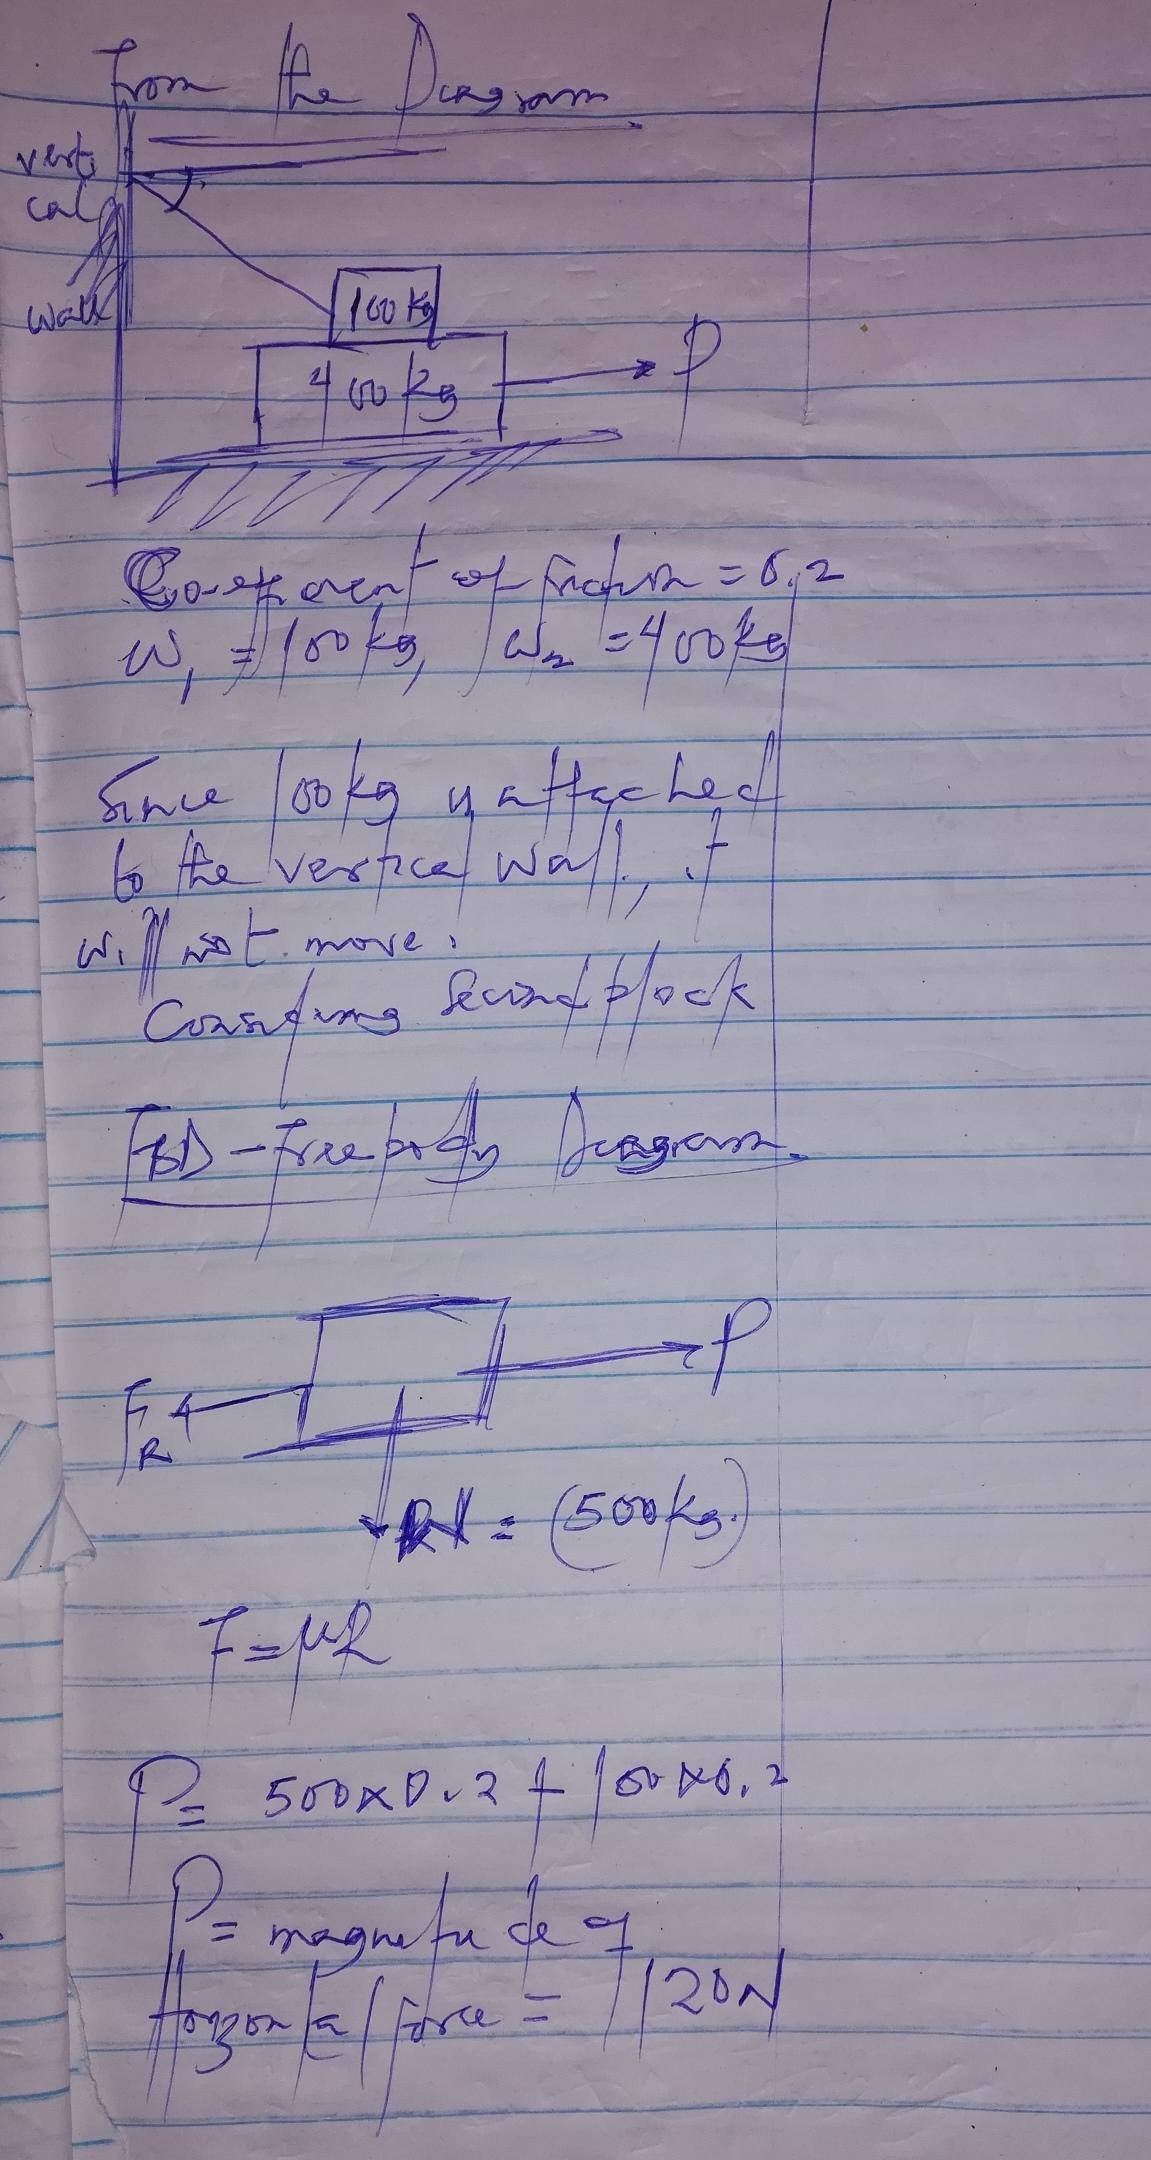 From the Diagram
verti
cal
wall
100kg
400kg
P
Co-efficient of friction = 0.2
W1 = 100kg, W2 = 400kg
Since 100kg is attached
to the vertical wall, it
will not move.
Considering Second block
FBD - Free body Diagram.
P
FR
= (500kg.)
F = μR
P = 500x0.2 + 100x0.2
P = magnitude of
Horizontal force = 120N